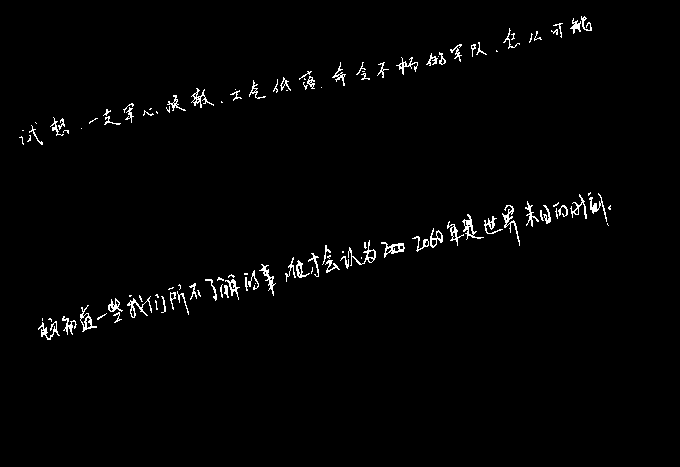 试想,一支军心涣散、士气低落、命令不畅的军队,怎么可能
一些我们所不了解的事,他才会认为 2060年是世界末日的时刻.